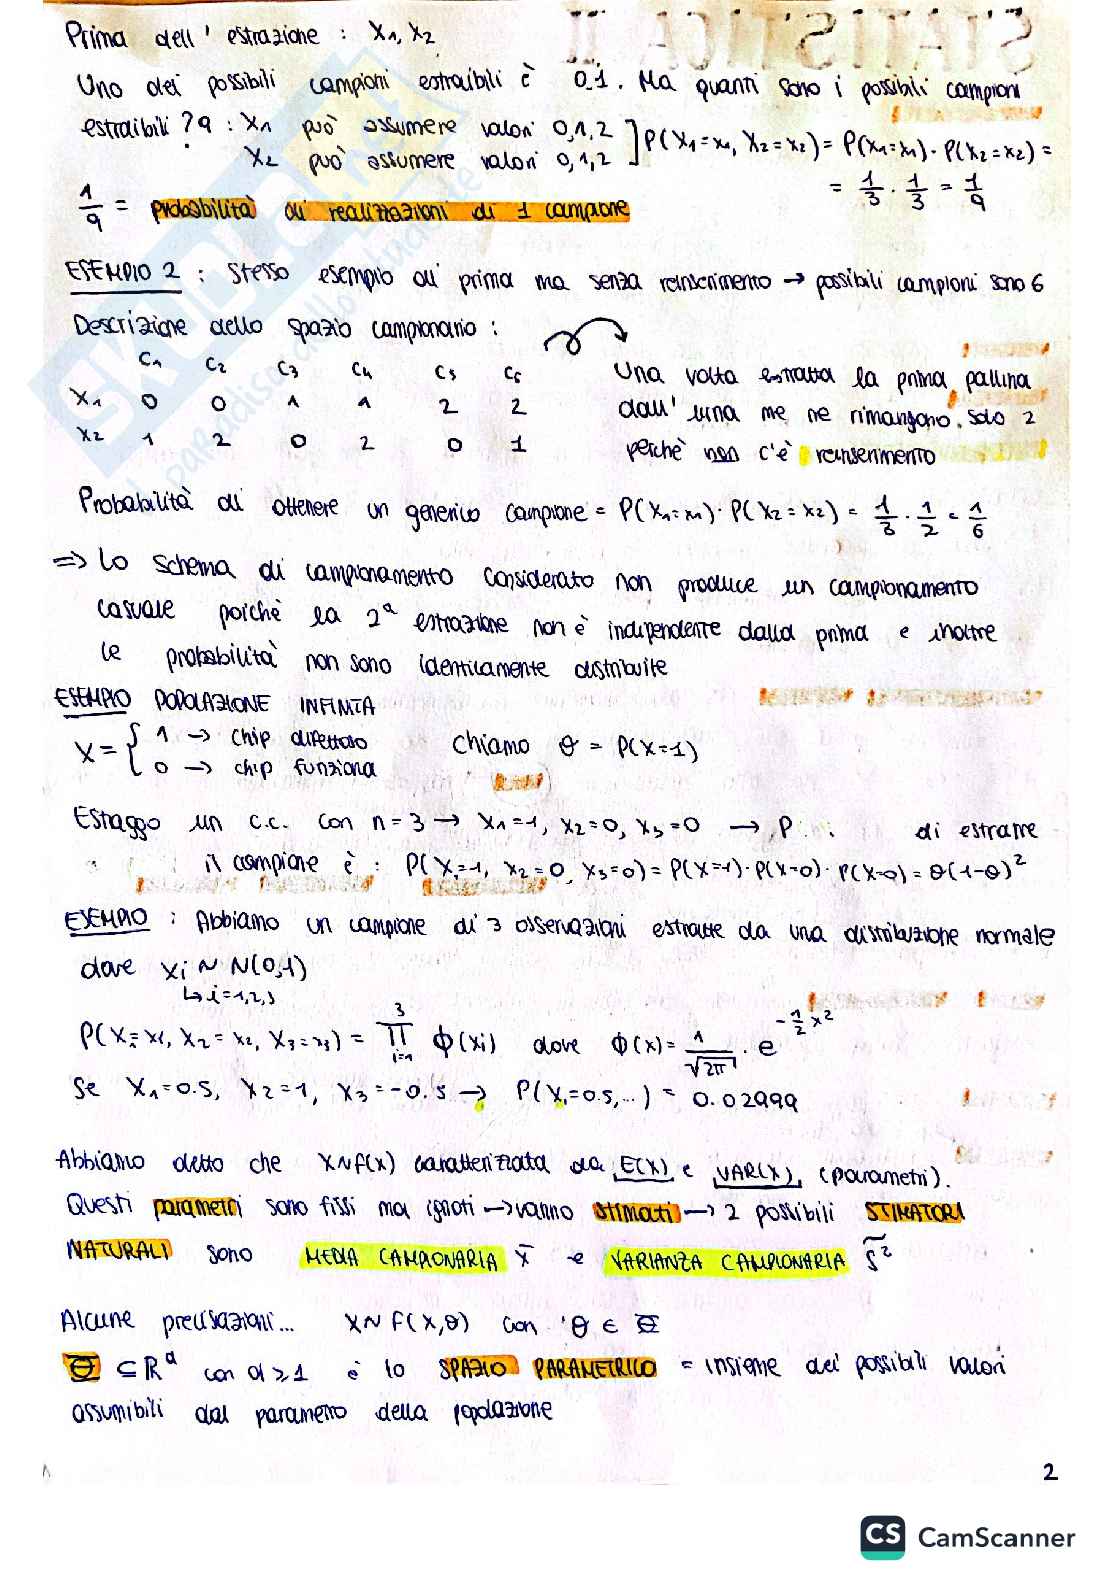 STATISTICA II
Prima dell' estrazione : X₁, X₂
Uno dei possibili campioni estraibili è 0,1. Ma quanti sono i possibili campioni
estraibili ? 9 : X₁ può assumere valori 0,1,2 ] P(X₁=x₁, X₂=x₂) = P(X₁=x₁) · P(X₂=x₂) =
X₂ può assumere valori 0,1,2
= 1/3 · 1/3 = 1/9
1/9 = probabilità di realizzazioni di 1 campione
ESEMPIO 2 : Stesso esempio di prima ma senza reinserimento → possibili campioni sono 6
Descrizione dello spazio campionario :
C₁ C₂ C₃ C₄ C₅ C₆
X₁ 0 0 1 1 2 2
X₂ 1 2 0 2 0 1
Una volta estratta la prima pallina
dall' urna me ne rimangono solo 2
perchè non c'è reinserimento
Probabilità di ottenere un generico campione = P(X₁=x₁) · P(X₂=x₂) = 1/3 · 1/2 = 1/6
=> Lo schema di campionamento considerato non produce un campionamento
casuale poichè la 2ª estrazione non è indipendente dalla prima e inoltre
le probabilità non sono identicamente distribuite
ESEMPIO POPOLAZIONE INFINITA
X = { 1 → chip difettoso
0 → chip funziona
Chiamo θ = P(X=1)
Estraggo un c.c. con n=3 → X₁=1, X₂=0, X₃=0 → P di estrarre
il campione è : P(X₁=1, X₂=0, X₃=0) = P(X=1)·P(X=0)·P(X=0) = θ(1-θ)²
ESEMPIO : Abbiamo un campione di 3 osservazioni estratte da una distribuzione normale
dove Xi ~ N(0,1)
↳ i=1,2,3
P(X₁=x₁, X₂=x₂, X₃=x₃) = ∏ᵢ₌₁³ ϕ(xi) dove ϕ(x) = 1/√2π · e^(-1/2 x²)
Se X₁=0.5, X₂=1, X₃=-0.5 → P(X₁=0.5,...) = 0.02999
Abbiamo detto che X~f(x) caratterizzata da E(X) e VAR(X), (parametri).
Questi parametri sono fissi ma ignoti → vanno stimati → 2 possibili STIMATORI
NATURALI sono MEDIA CAMPIONARIA x̄ e VARIANZA CAMPIONARIA S̃²
Alcune precisazioni... X~f(x,θ) con θ ∈ Θ
Θ ⊆ ℝᵈ con d≥1 è lo SPAZIO PARAMETRICO = insieme dei possibili valori
assumibili dal parametro della popolazione
2
CS CamScanner